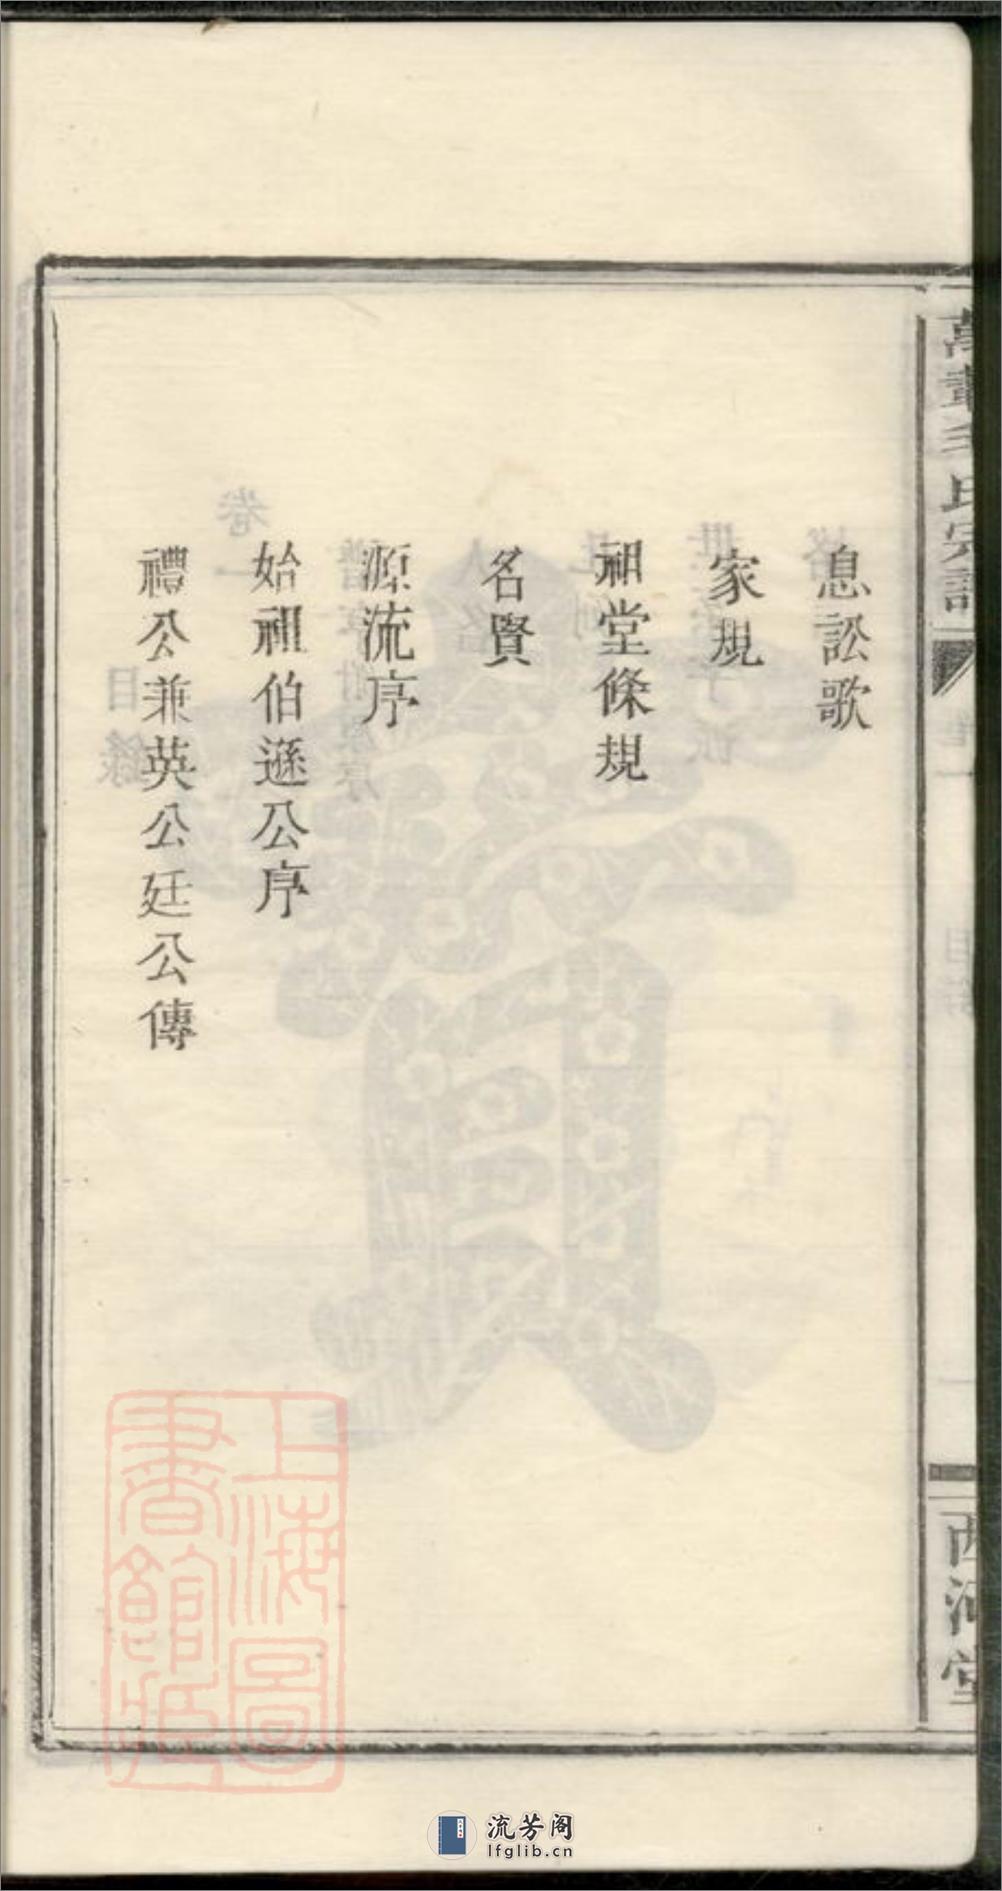 息訟歌
家規
祖堂條規
名賢
源流序
始祖伯遜公序
禮公兼英公廷公傳
氏宗譜
西河堂
上海圖
書館藏
流芳阁
lfglib.cn